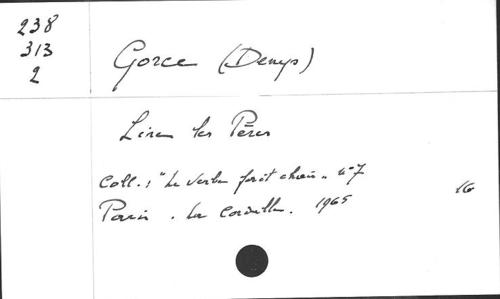 238
313
2
Gorce (Denys)
Lire les Pères
Coll. : "Le Verbe fait chair" n° 7
Paris. La Cordelle. 1965
16